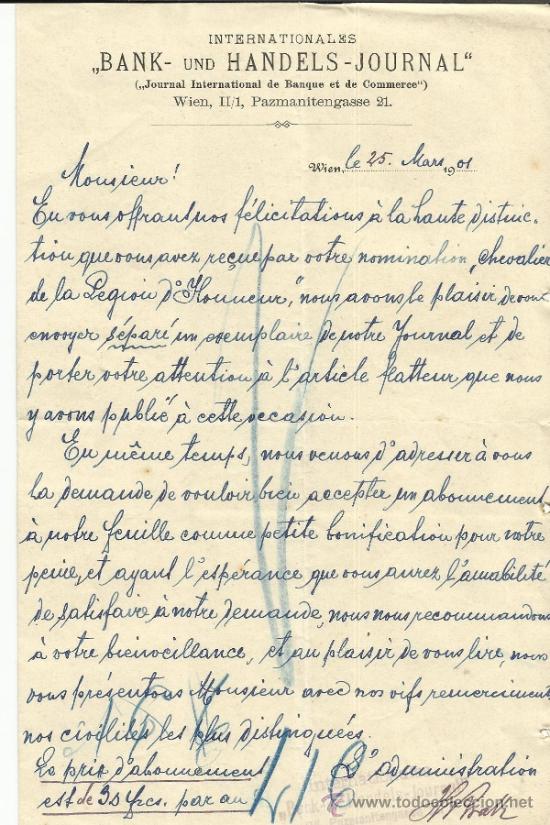 INTERNATIONALES
„BANK- UND HANDELS-JOURNAL“
(„Journal International de Banque et de Commerce“)
Wien, II/1, Pazmanitengasse 21.
Wien, le 25. Mars 1901
Monsieur!
En vous offrant nos félicitations à la haute distinc-
tion que vous avez reçue par votre nomination „Chevalier
de la Legion d'Honneur,“ nous avons le plaisir de vous
envoyer séparé un exemplaire de notre Journal et de
porter votre attention à l'article flatteur que nous
y avons publié à cette occasion.
En même temps, nous venons d'adresser à vous
la demande de vouloir bien accepter un abonnement
à notre feuille comme petite bonification pour notre
peine, et ayant l'espérance que vous aurez l'amabilité
de satisfaire à notre demande, nous nous recommandons
à votre bienveillance, et au plaisir de vous lire, nous
vous présentons Monsieur avec nos vifs remerciments
nos civilités les plus distinguées.
Le prix d'abonnement L'administration
est de 30 frcs. par an
todocoleccion.net